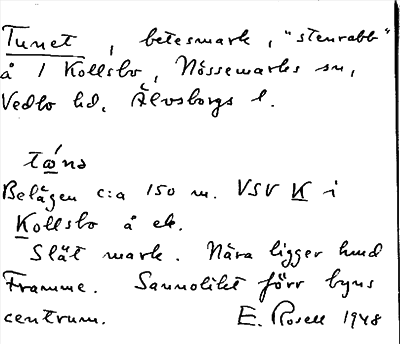 Tunet, betesmark, "stenrabb"
å 1 Kollsbo, Nössemarks sn,
Vedbo hd, Älvsborgs l.
tǿnə
Belägen c:a 150 m. VSV K i
Kollsbo å ek.
Slät mark. Nära ligger hmd
Framme. Sannolikt förr byns
centrum. E. Rosell 1948